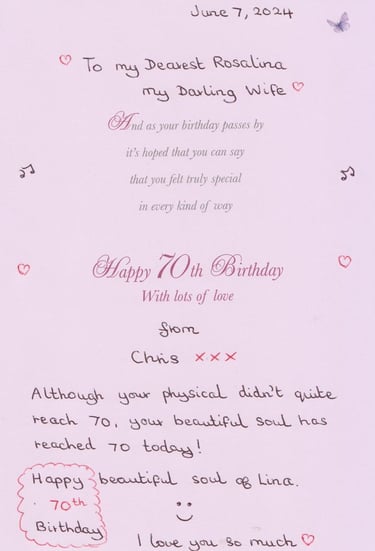 June 7, 2024
To my Dearest Rosalina
my Darling Wife
And as your birthday passes by
it's hoped that you can say
that you felt truly special
in every kind of way
Happy 70th Birthday
With lots of love
from
Chris xxx
Although your physical didn't quite
reach 70, your beautiful soul has
reached 70 today!
Happy beautiful soul of Lina.
70th
Birthday
I love you so much